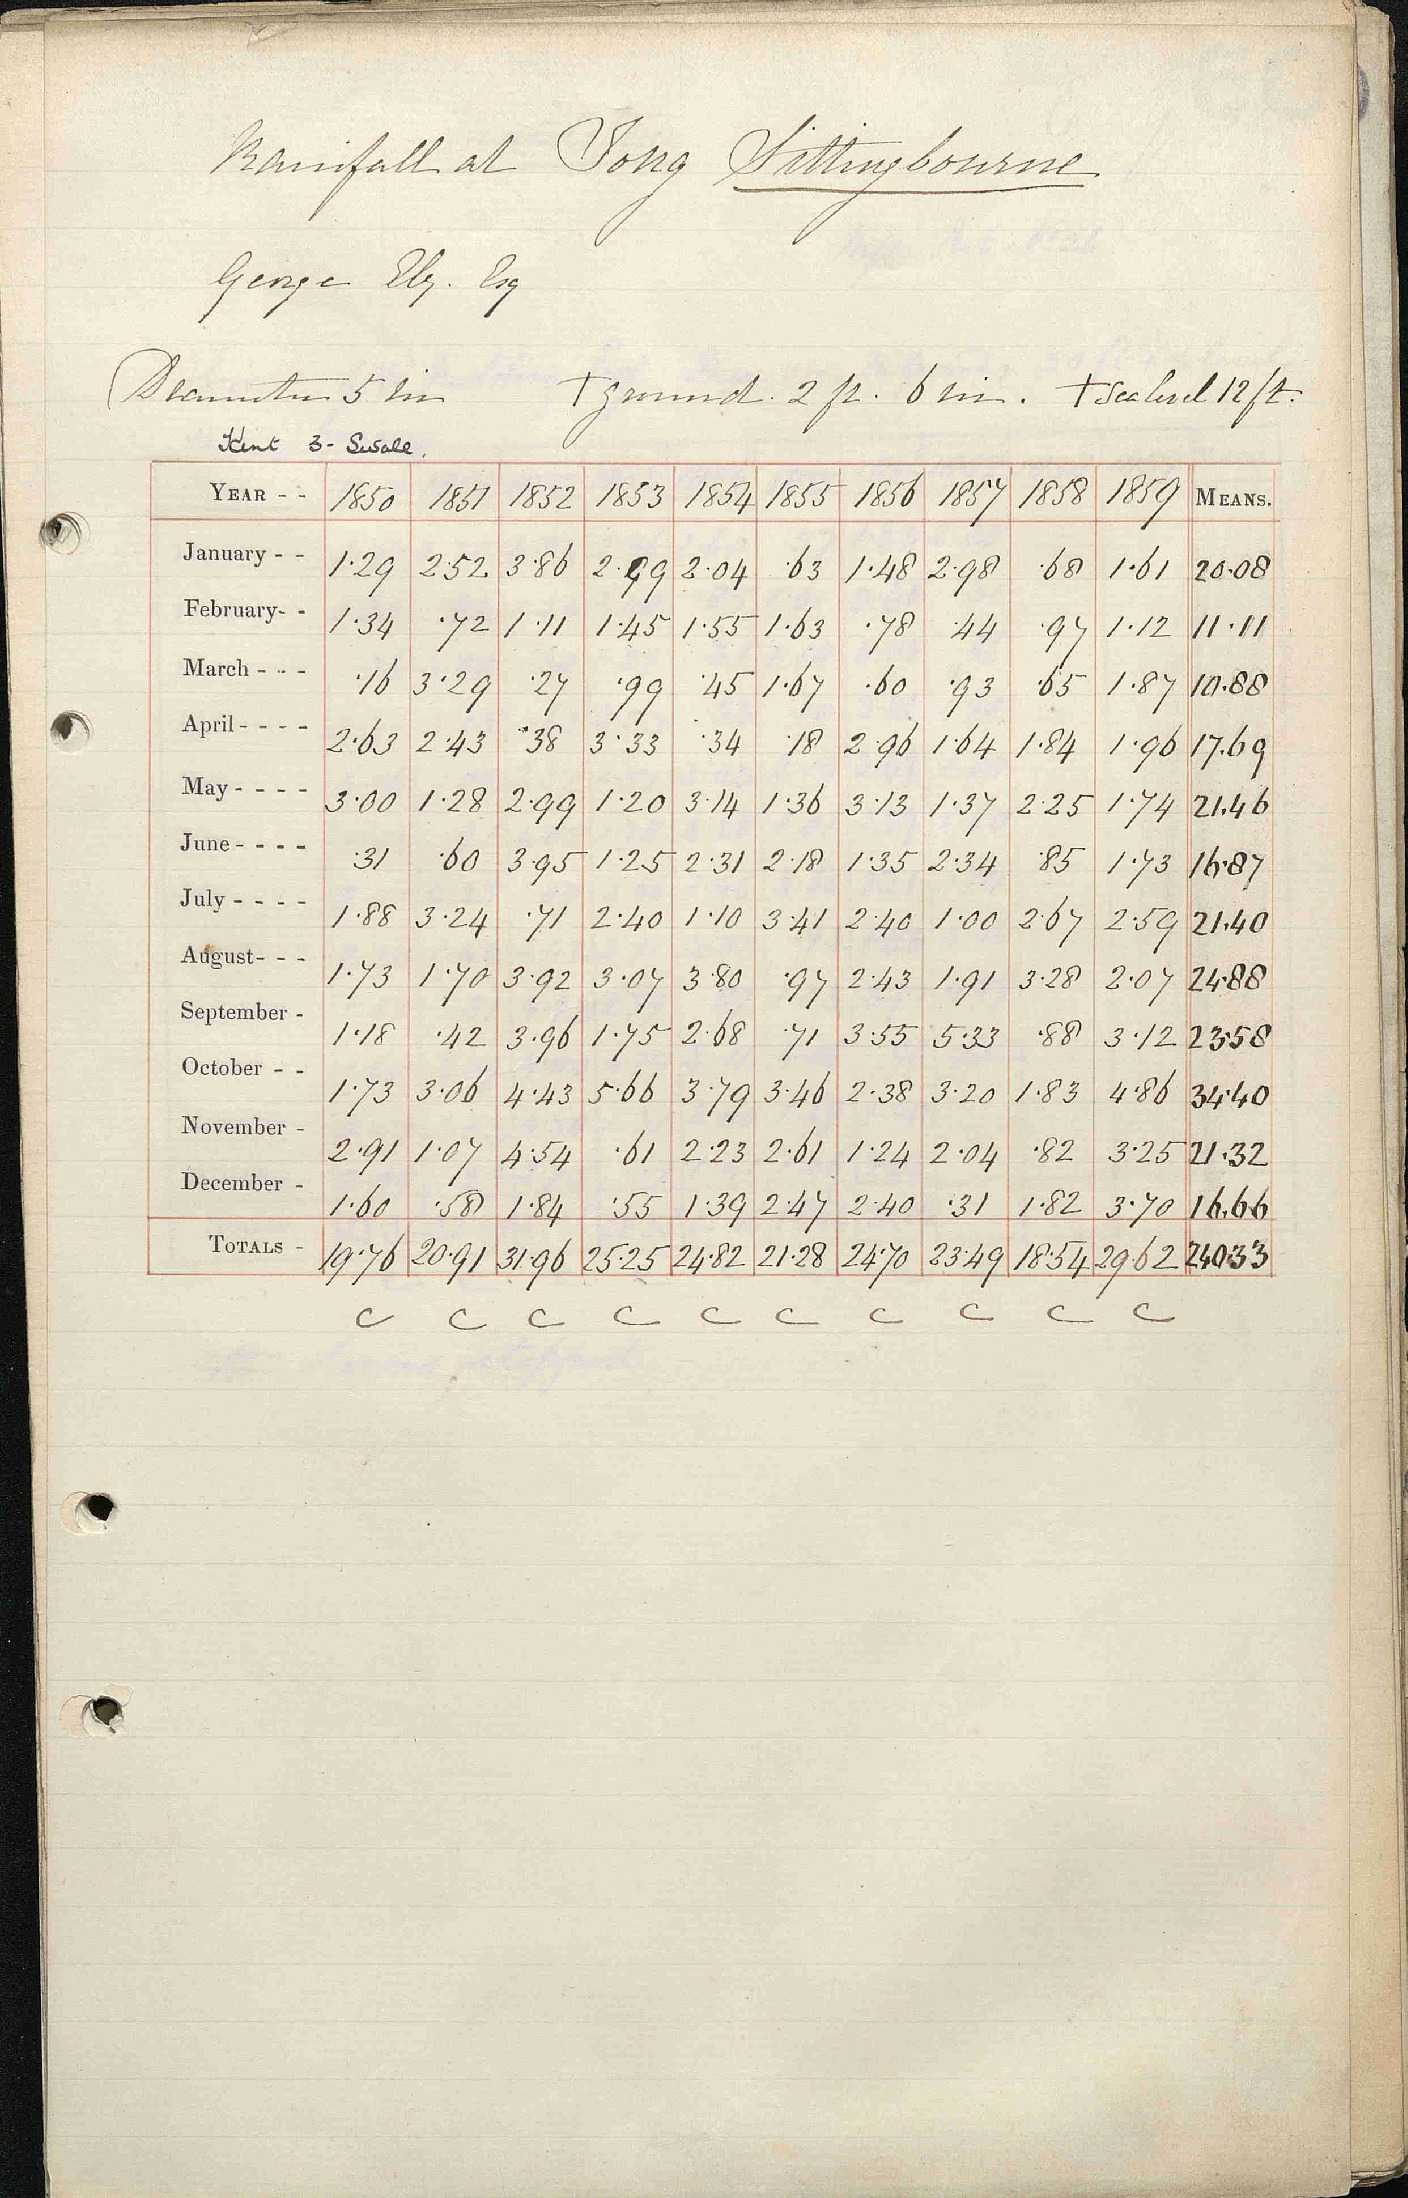 Rainfall at Tong Sittingbourne
George Ely. Esq
Diameter 5 in † ground. 2 ft. 6 in. † Sea level 12 ft.
Kent 3 - Swale.
YEAR - - 1850 1851 1852 1853 1854 1855 1856 1857 1858 1859 MEANS.
January - - 1.29 2.52 3.86 2.99 2.04 .63 1.48 2.98 .68 1.61 20.08
February- - 1.34 .72 1.11 1.45 1.55 1.63 .78 .44 .97 1.12 11.11
March - - - .16 3.29 .27 .99 .45 1.67 .60 .93 .65 1.87 10.88
April - - - - 2.63 2.43 .38 3.33 .34 .18 2.96 1.64 1.84 1.96 17.69
May - - - - 3.00 1.28 2.99 1.20 3.14 1.36 3.13 1.37 2.25 1.74 21.46
June - - - - .31 .60 3.95 1.25 2.31 2.18 1.35 2.34 .85 1.73 16.87
July - - - - 1.88 3.24 .71 2.40 1.10 3.41 2.40 1.00 2.67 2.59 21.40
August- - - 1.73 1.70 3.92 3.07 3.80 .97 2.43 1.91 3.28 2.07 24.88
September - 1.18 .42 3.96 1.75 2.68 .71 3.55 5.33 .88 3.12 23.58
October - - 1.73 3.06 4.43 5.66 3.79 3.46 2.38 3.20 1.83 4.86 34.40
November - 2.91 1.07 4.54 .61 2.23 2.61 1.24 2.04 .82 3.25 21.32
December - 1.60 .58 1.84 .55 1.39 2.47 2.40 .31 1.82 3.70 16.66
TOTALS - 19.76 20.91 31.96 25.25 24.82 21.28 24.70 23.49 18.54 29.62 240.33
C C C C C C C C C C